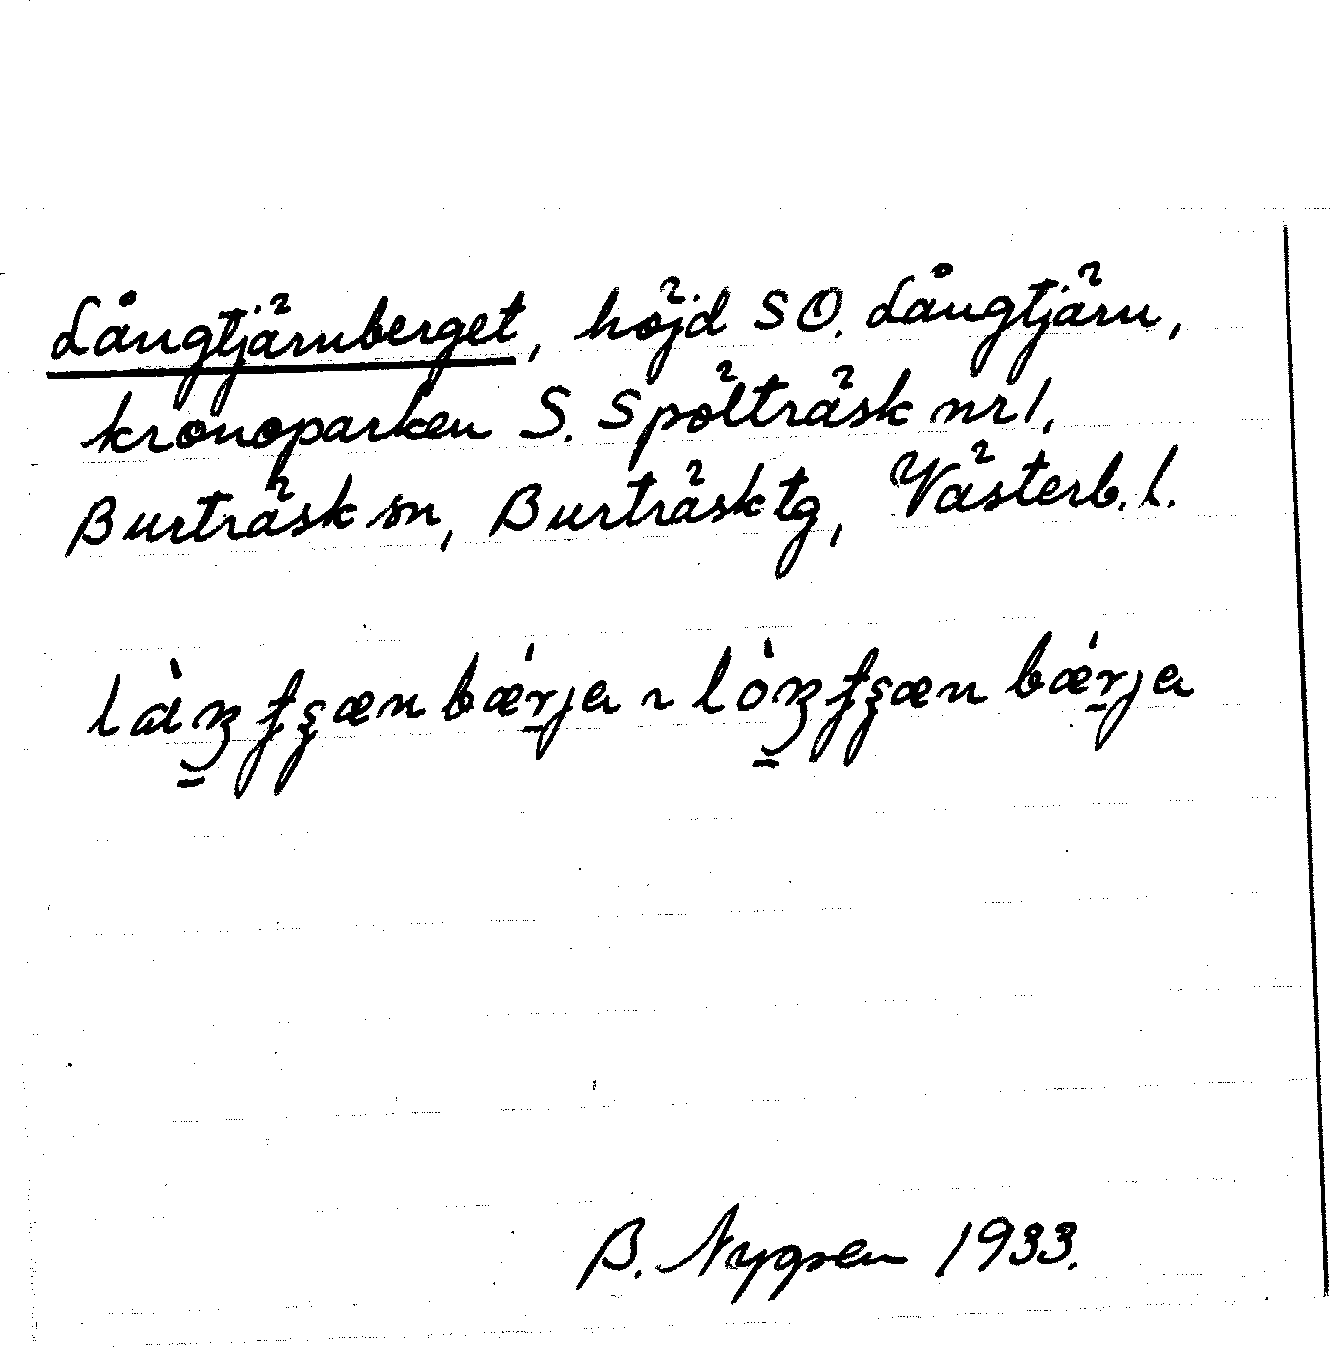 Långtjärnberget, höjd SO. Långtjärn,
kronoparken S. Spölträsk nr 1,
Burträsk sn, Burträsk tg, Västerb. l.
B. Nygren 1933.